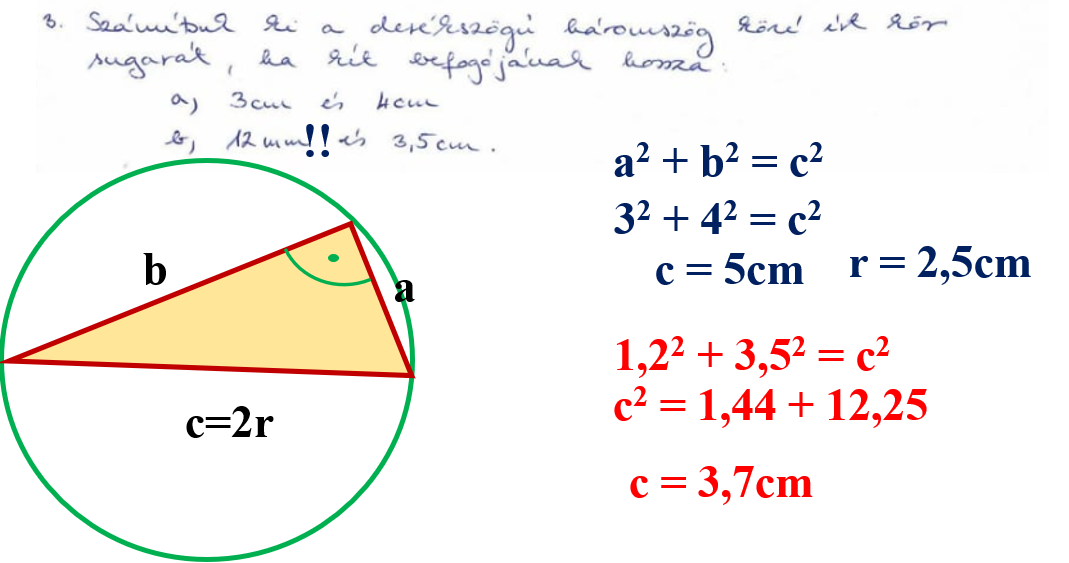 3. Számítsuk ki a derékszögű háromszög köré írt kör
sugarát, ha két befogójának hossza:
a, 3cm és 4cm
b, 12mm!! és 3,5cm.
a² + b² = c²
3² + 4² = c²
c = 5cm r = 2,5cm
b
a
c=2r
1,2² + 3,5² = c²
c² = 1,44 + 12,25
c = 3,7cm